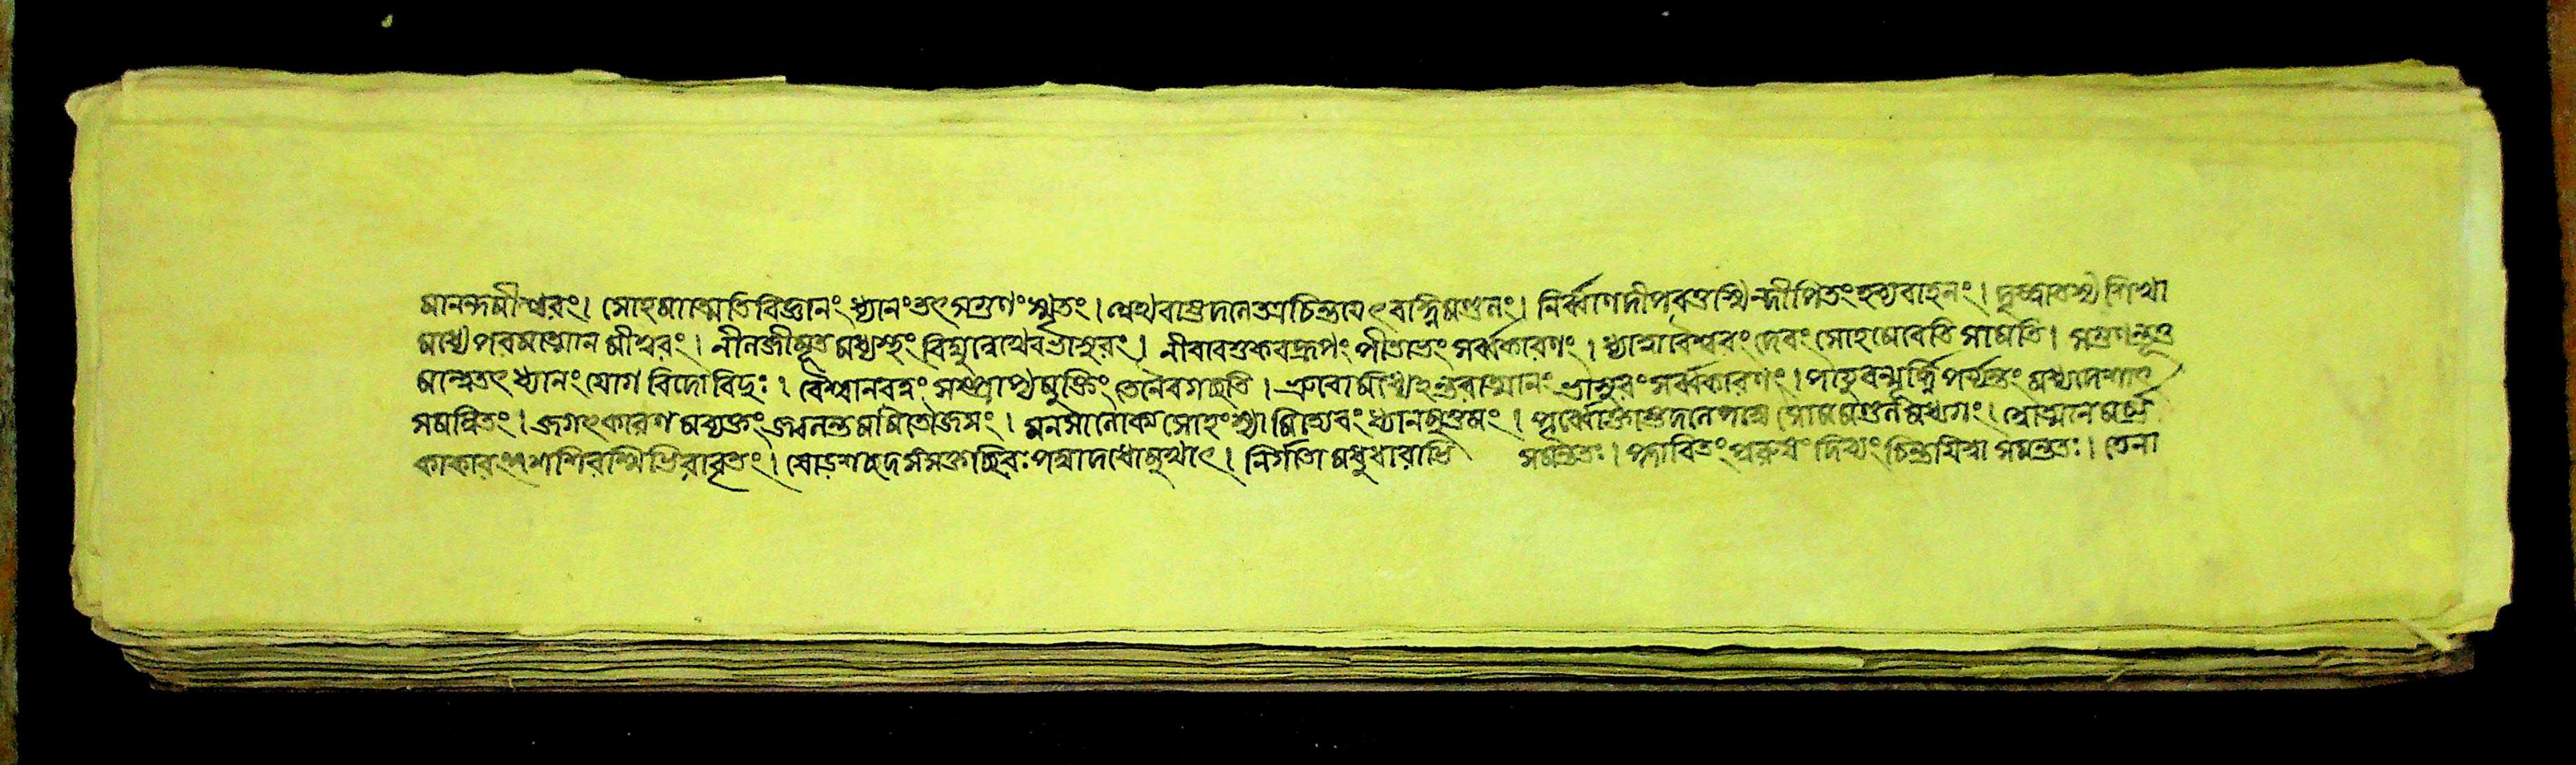 মানন্দমীশ্বরং। সোহমাত্মতি বিজ্ঞানং ধ্যানং তৎ সগুণং স্মৃতং। অথবাষ্টদলে চিন্তয়েৎ বহ্নিমণ্ডলং। নির্ব্বাণদীপবত্তস্মিন্দীপিতং হব্যবাহনং। দৃষ্ট্বা তস্য শিখা
মধ্যে পরমাত্মানমীশ্বরং। নীলজীমূতমধ্যস্থং বিদ্যুল্লেখেব ভাসুরং। নীবারশুকবদ্রূপং পীতাভং সর্ব্বকারণং। ধ্যাত্বা বৈশ্বানরং দেবং সোহমেবেতি সা মতি। সগুণেষূত্ত
মাম্মেতৎ ধ্যানং যোগবিদো বিদুঃ। বৈশ্বানরত্বং সম্প্রাপ্য মুক্তিং তেনৈব গচ্ছতি। ভ্রুবোর্মধ্যেহন্তরাত্মানং ভাসুরং সর্ব্বকারণং। পায়ুবন্মূর্দ্ধ্নি পর্য্যন্তং মধ্যদেশাৎ
সমন্বিতং। জগৎকারণমব্যক্তং জ্বলন্তমমিতৌজসং। মনসালোক্য সোহংস্যামিত্যেবং ধ্যানমুত্তমং। পূর্ব্বোক্তাষ্টদলপদ্মে সোমমণ্ডলমধ্যগং। স্বাত্মানমর্ভ
কাকারং শশিরশ্মিভিরাবৃতং। ষোড়শচ্ছদসংযুক্তচ্ছিরঃপদ্মাদধোমুখাৎ। নির্গতা মধুধারাভি সমন্ততঃ। প্লাবিতং পুরুষং দিব্যং চিন্তয়িত্বা সমন্ততঃ। তেনা